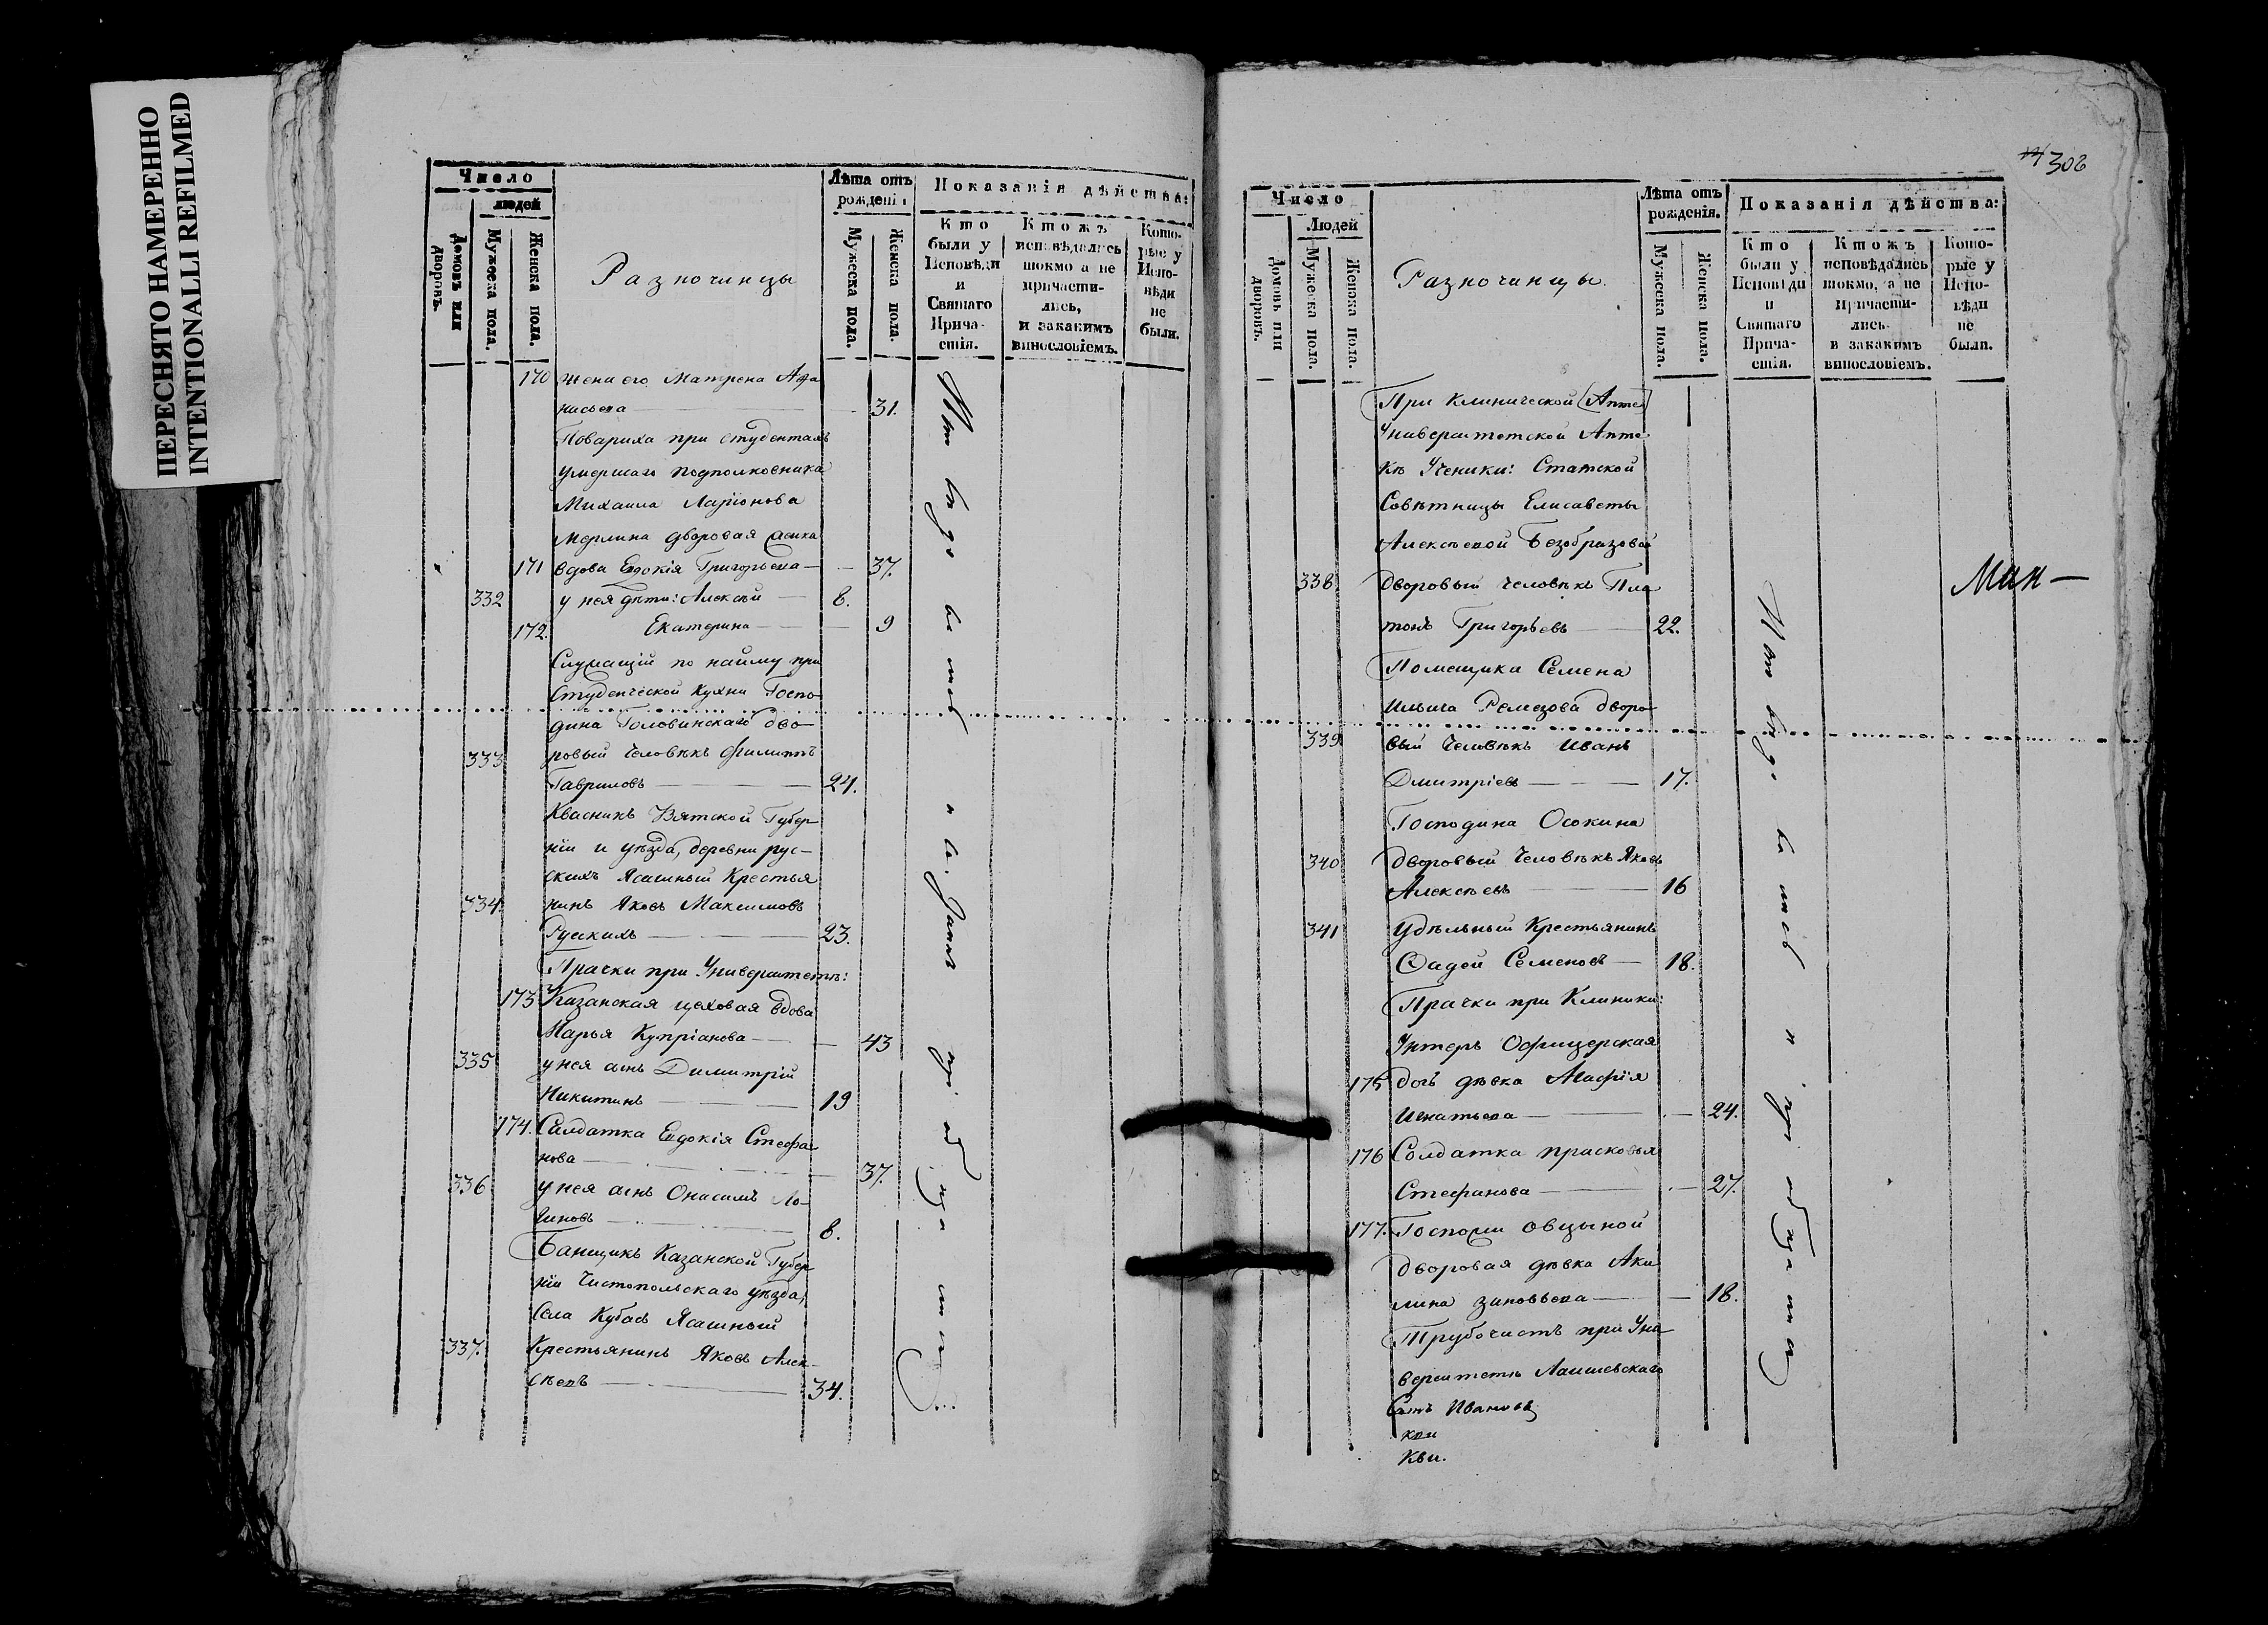 ПЕРЕСНЯТО НАМЕРЕННО
INTENTIONALLI REFILMED
Число
людей
Домовъ или дворовъ.
Мужеска пола.
Женска пола.
Разночинцы
Лѣта отъ рожденія
Мужеска пола.
Женска пола.
Показанія дѣйства:
Кто были у Исповѣди и Святаго Прича-стія.
Ктожъ исповѣдались токмо а не причасти-лись, и закакимъ винословіемъ.
Кото-рые у Испо-вѣди не были.
170 жена его Матрена Афа
насьева — 31.
Повариха при студентахъ
умершаго подполковника
Михаила Ларіонова
Мерлина дворовая
171 вдова Евдокія Григорьева — 37.
332 у нея дѣти: Алексѣй — 8.
172. Екатерина — 9
Служащій по найму при
Студенческой Кухни Госпо
дина Головинскаго дво-
333 ровый Человѣкъ Филиппъ
Гавриловъ — 24.
Квасникъ Вятской Губер
ніи и уѣзда, деревни рус-
скихъ Ясашный Крестья
334. нинъ Яковъ Максимовъ
Рускихъ — 23.
Прачки при Университетѣ:
173 Казанская цеховая вдова
Марья Купріанова — 43
335 у нея сынъ Димитрій
Никитинъ — 19
174. Салдатка Евдокія Стефа
нова — 37.
336 у нея сынъ Онисимъ Ло-
гиновъ — 8.
Банщикъ Казанской Губер
ніи Чистопольскаго уѣзда,
Села Кубасъ Ясашный
337. Крестьянинъ Яковъ Алек-
сѣевъ — 34.
306
Число
Людей
Домовъ или дворовъ.
Мужеска пола.
Женска пола.
Разночинцы.
Лѣта отъ рожденія.
Мужеска пола.
Женска пола.
Показанія дѣйства:
Кто были у Исповѣди и Святаго Прича-стія.
Ктожъ исповѣдались токмо, а не Причасти-лись и закакимъ винословіемъ.
Кото-рые у Испо-вѣди не были.
При Клинической (Апте)
Университетской Апте
кѣ Ученики: Статской
Совѣтницы Елисаветы
Алексѣевой Безобразовой
338 дворовый человѣкъ Пла
тонъ Григорьевъ — 22.
Помещика Семена
Ильича Ремезова дворо
339 вый Человѣкъ Иванъ
Дмитріевъ — 17.
Господина Осокина
340 дворовый Человѣкъ Яковъ
Алексѣевъ — 16
341 Удѣльный Крестьянинъ
Фадей Семеновъ — 18.
Прачки при Клиники:
Унтеръ Офицерская
175 дочь дѣвка Агафія
Игнатьева — 24.
176 Солдатка прасковья
Стефанова — 27.
177. Госпожи Овцыной
дворовая дѣвка Аки
лина зиновьева — 18.
Трубочистъ при Уни
верситетѣ Лаишевскаго